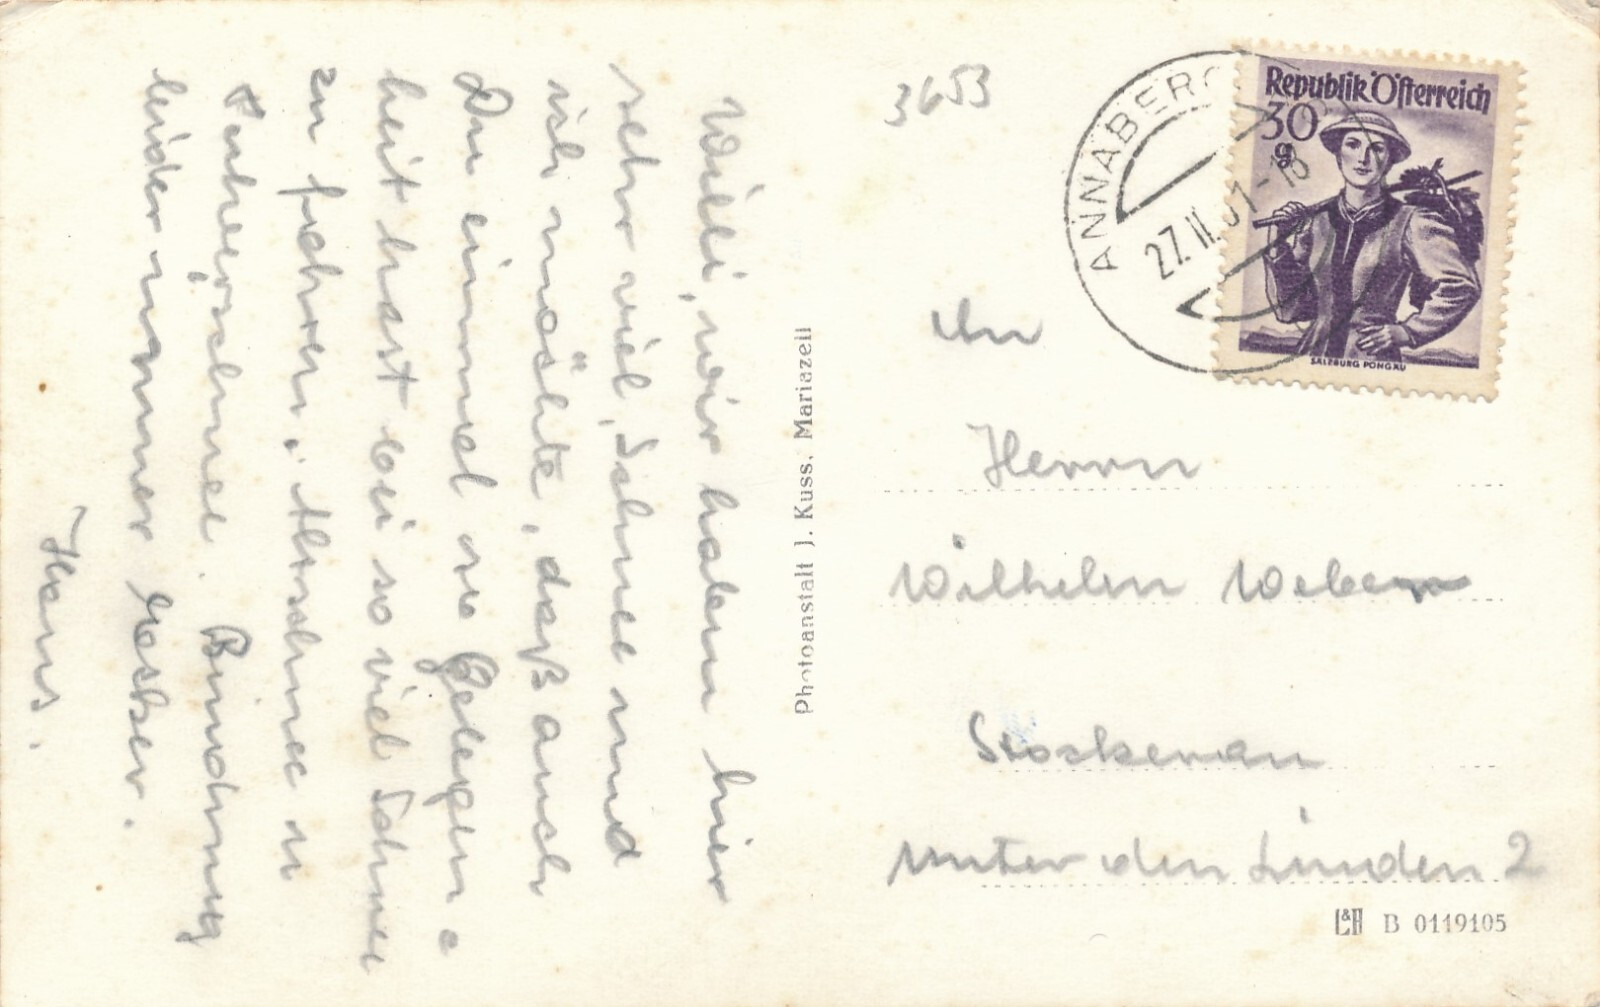 Willi, wir haben hier
sehr viel Schnee und
ich möchte, daß auch
Du einmal die Gelegen=
heit hast bei so viel Schnee
zu fahren. Altschnee u
Pulverschnee. Bindung
leider immer locker.
Hans.
Photoanstalt J. Kuss, Mariazell
3653
ANNABERG
27.II.51-18
Republik Österreich
30
g
SALZBURG PONGAU
An
Herrn
Wilhelm Weber
Stockerau
Unter den Linden 2
L&R B 0119105